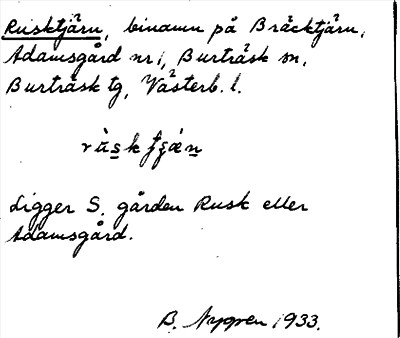 Rusktjärn, binamn på Bräcktjärn,
Adamsgård nr 1, Burträsk sn,
Burträsk tg, Västerb. l.
Ligger S. gården Rusk eller
Adamsgård.
B. Nygren 1933.